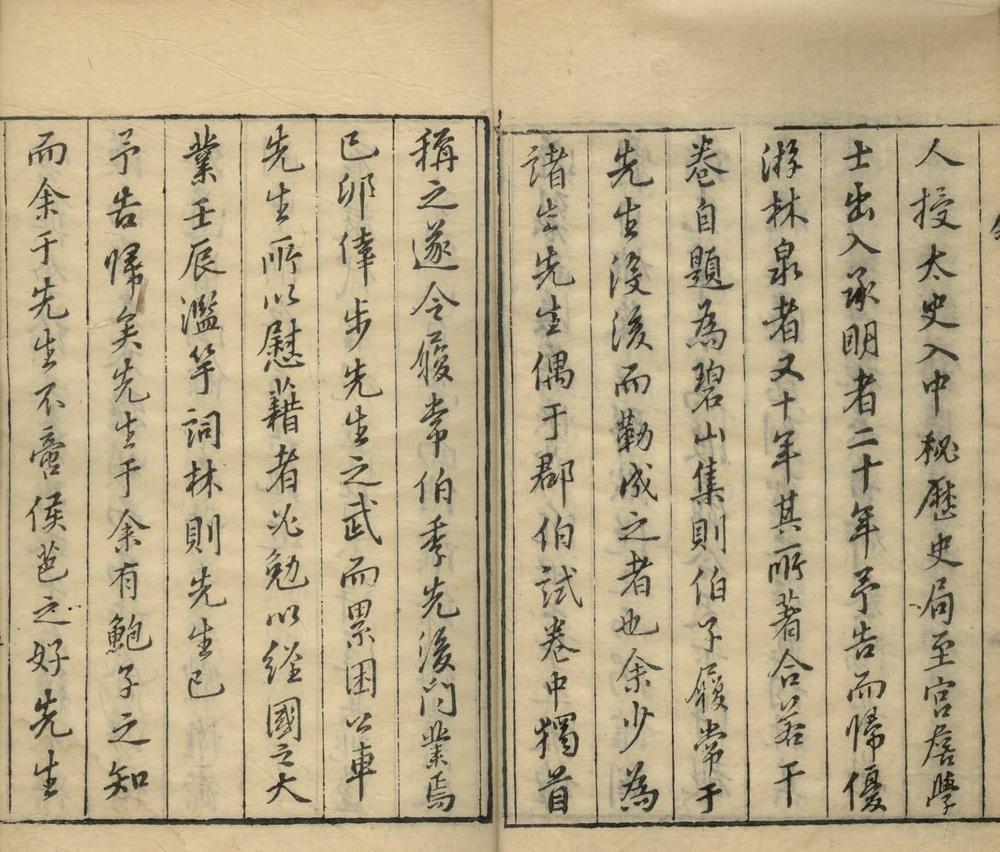 人授太史入中秘歷史局至宮詹學
士出入承明者二十年予告而歸優
游林泉者又十年其所著合若干
卷自題為碧山集則伯子履常于
先生沒後而勒成之者也余少為
諸生先生偶于郡伯試卷中獨首
稱之遂令履常伯季先後問業焉
己卯倖步先生之武而累困公車
先生所以慰藉者必勉以經國之大
業壬辰濫竽詞林則先生已
予告歸矣先生于余有鮑子之知
而余于先生不啻侯芭之好先生